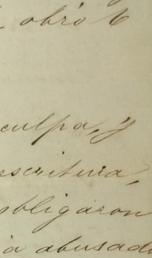 obró
culpa, y
escritura,
obligaron
ia abusado